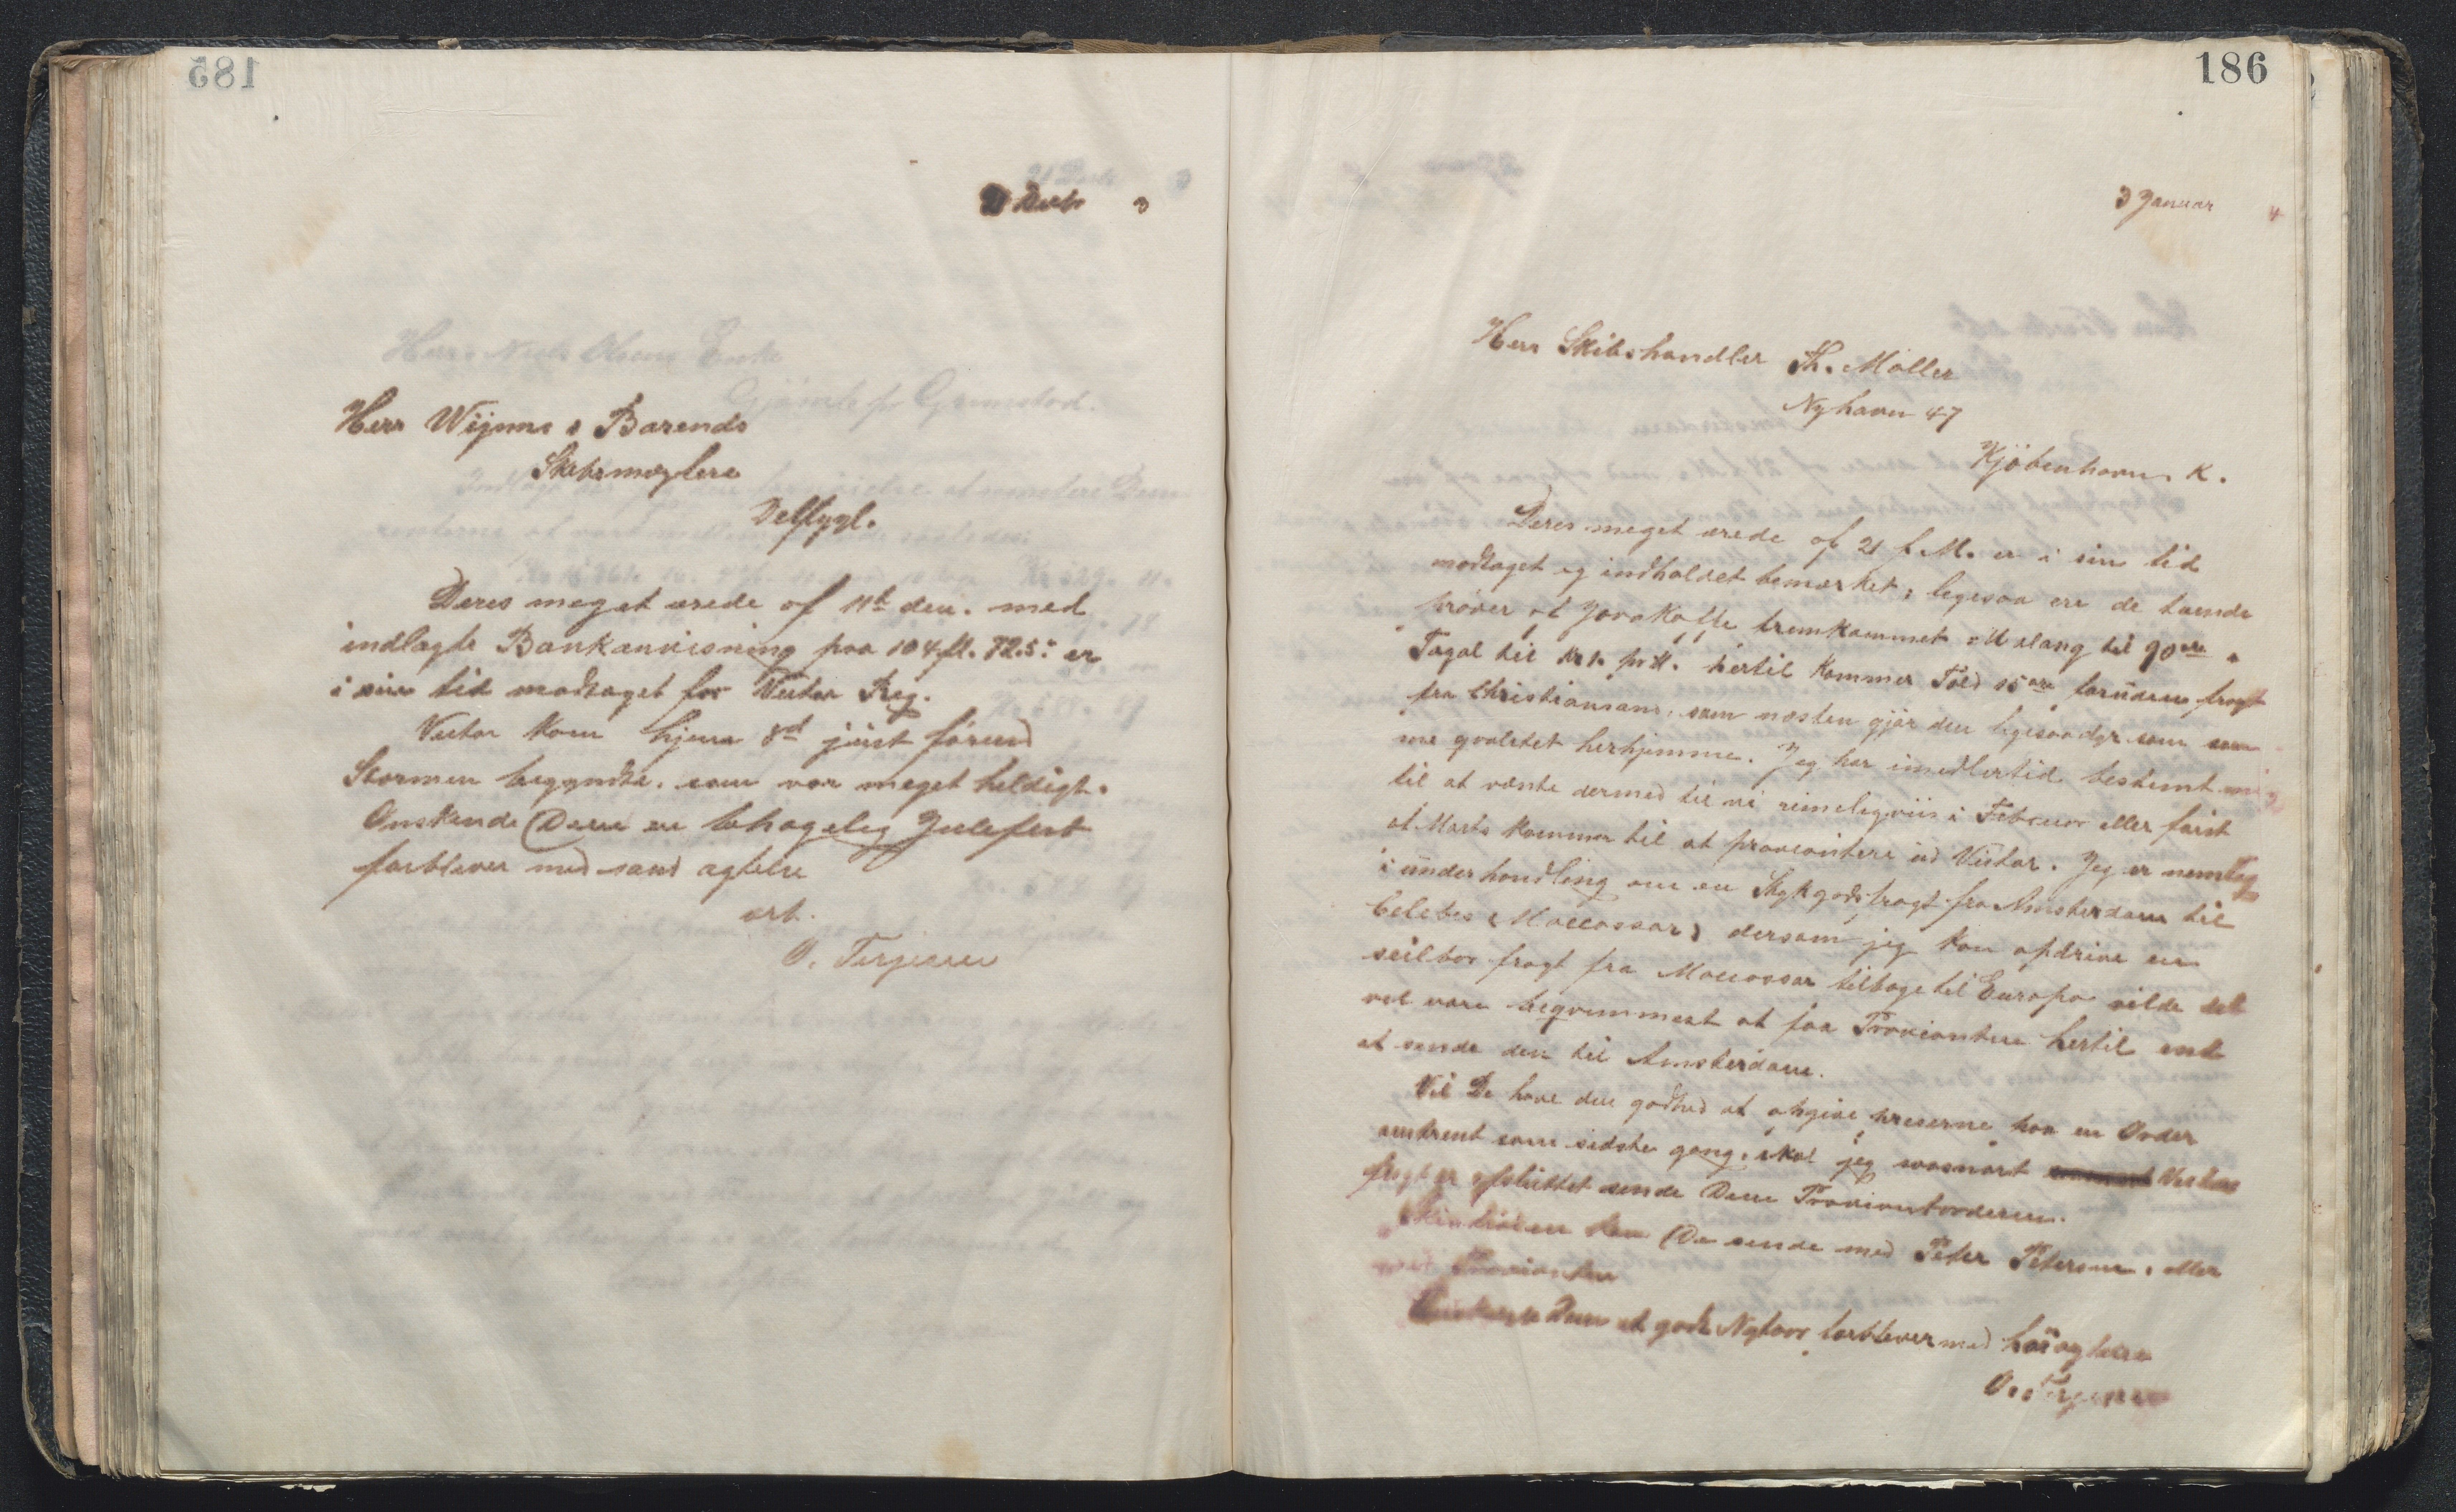 185
21 Decb 3
Herr Wijnne & Barends
Skibsmæglere
Delfzyl.
Deres meget ærede af 11te den. med
indlagte Bankanvisning paa 104 fl. 72.5: er
i sin tid modtaget for Vestas Reg.
Vestar kom hjem 8d just förend
Stormen begyndte. som var meget heldigt.
Önskende Dem en behagelig Julefest
forblever med sand agtelse
erb.
O. Terjesen
186
3 Januar 4
Herr Skibshandler Th. Möller
Nyhavn 47
Kjöbenhavn. K.
Deres meget ærede af 21 f. M. er i sin tid
modtaget og indholdet bemærket, legesaa ere de tvende
pröver af Javakaffe fremkommet: Malang til 90 öre.
Tagal til Kr 1. pr ℔. hertil kommer Told 15 öre foruden fragt
fra Christiansan, som næsten gjör den legesaadyr som sam
me qvalitet herhjemme. Jeg har imedlertid bestemt mig
til at vente dermed til vi rimeligviis i Februar eller först
af Marts kommer til at proviantere ud Vestar. Jeg er nemlig
i underhandling om en Stykgodsfragt fra Amsterdam til
Celebes (Maccassar) dersom jeg kan opdrive en
seilbar fragt fra Maccassar tilbage til Europa vilde det
vel være beqvemmest at faa Provianten hertil end
at sende den til Amsterdam.
Vil De have den godhed at opgive preserne paa en Order
omtrent som sidste gang, skal jeg saasnart Vestas
fragt er afsluttet sende Dem Proviantorderen.
kan De sende med Peter Petersen, eller
med Provianten
Önskende Dem et godt Nytaar forblever med höiagtelse
O. Terjesen